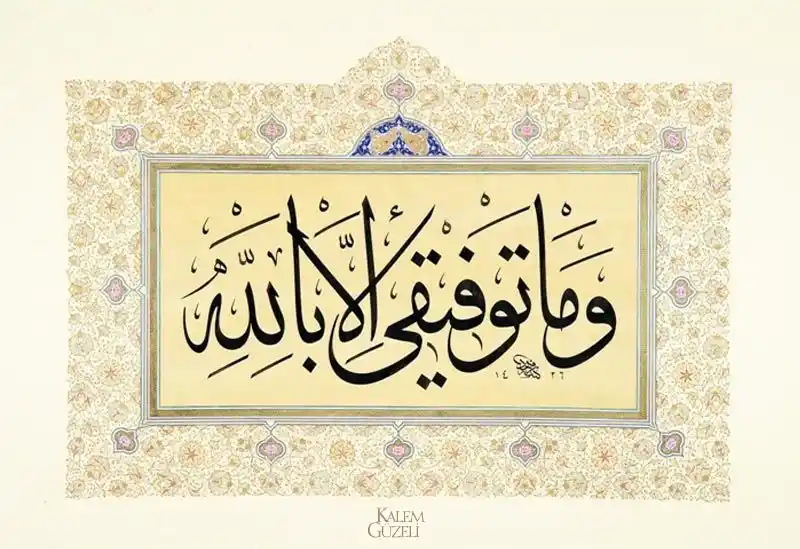 وَمَا تَوْفِيقِي إِلَّا بِاللَّهِ
١٤٢٦
KALEM
GÜZELİ